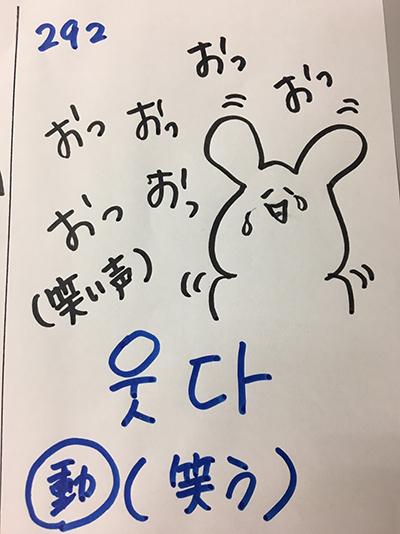 292
おっ
おっ
おっ おっ
おっ おっ
(笑い声)
웃다
動(笑う)